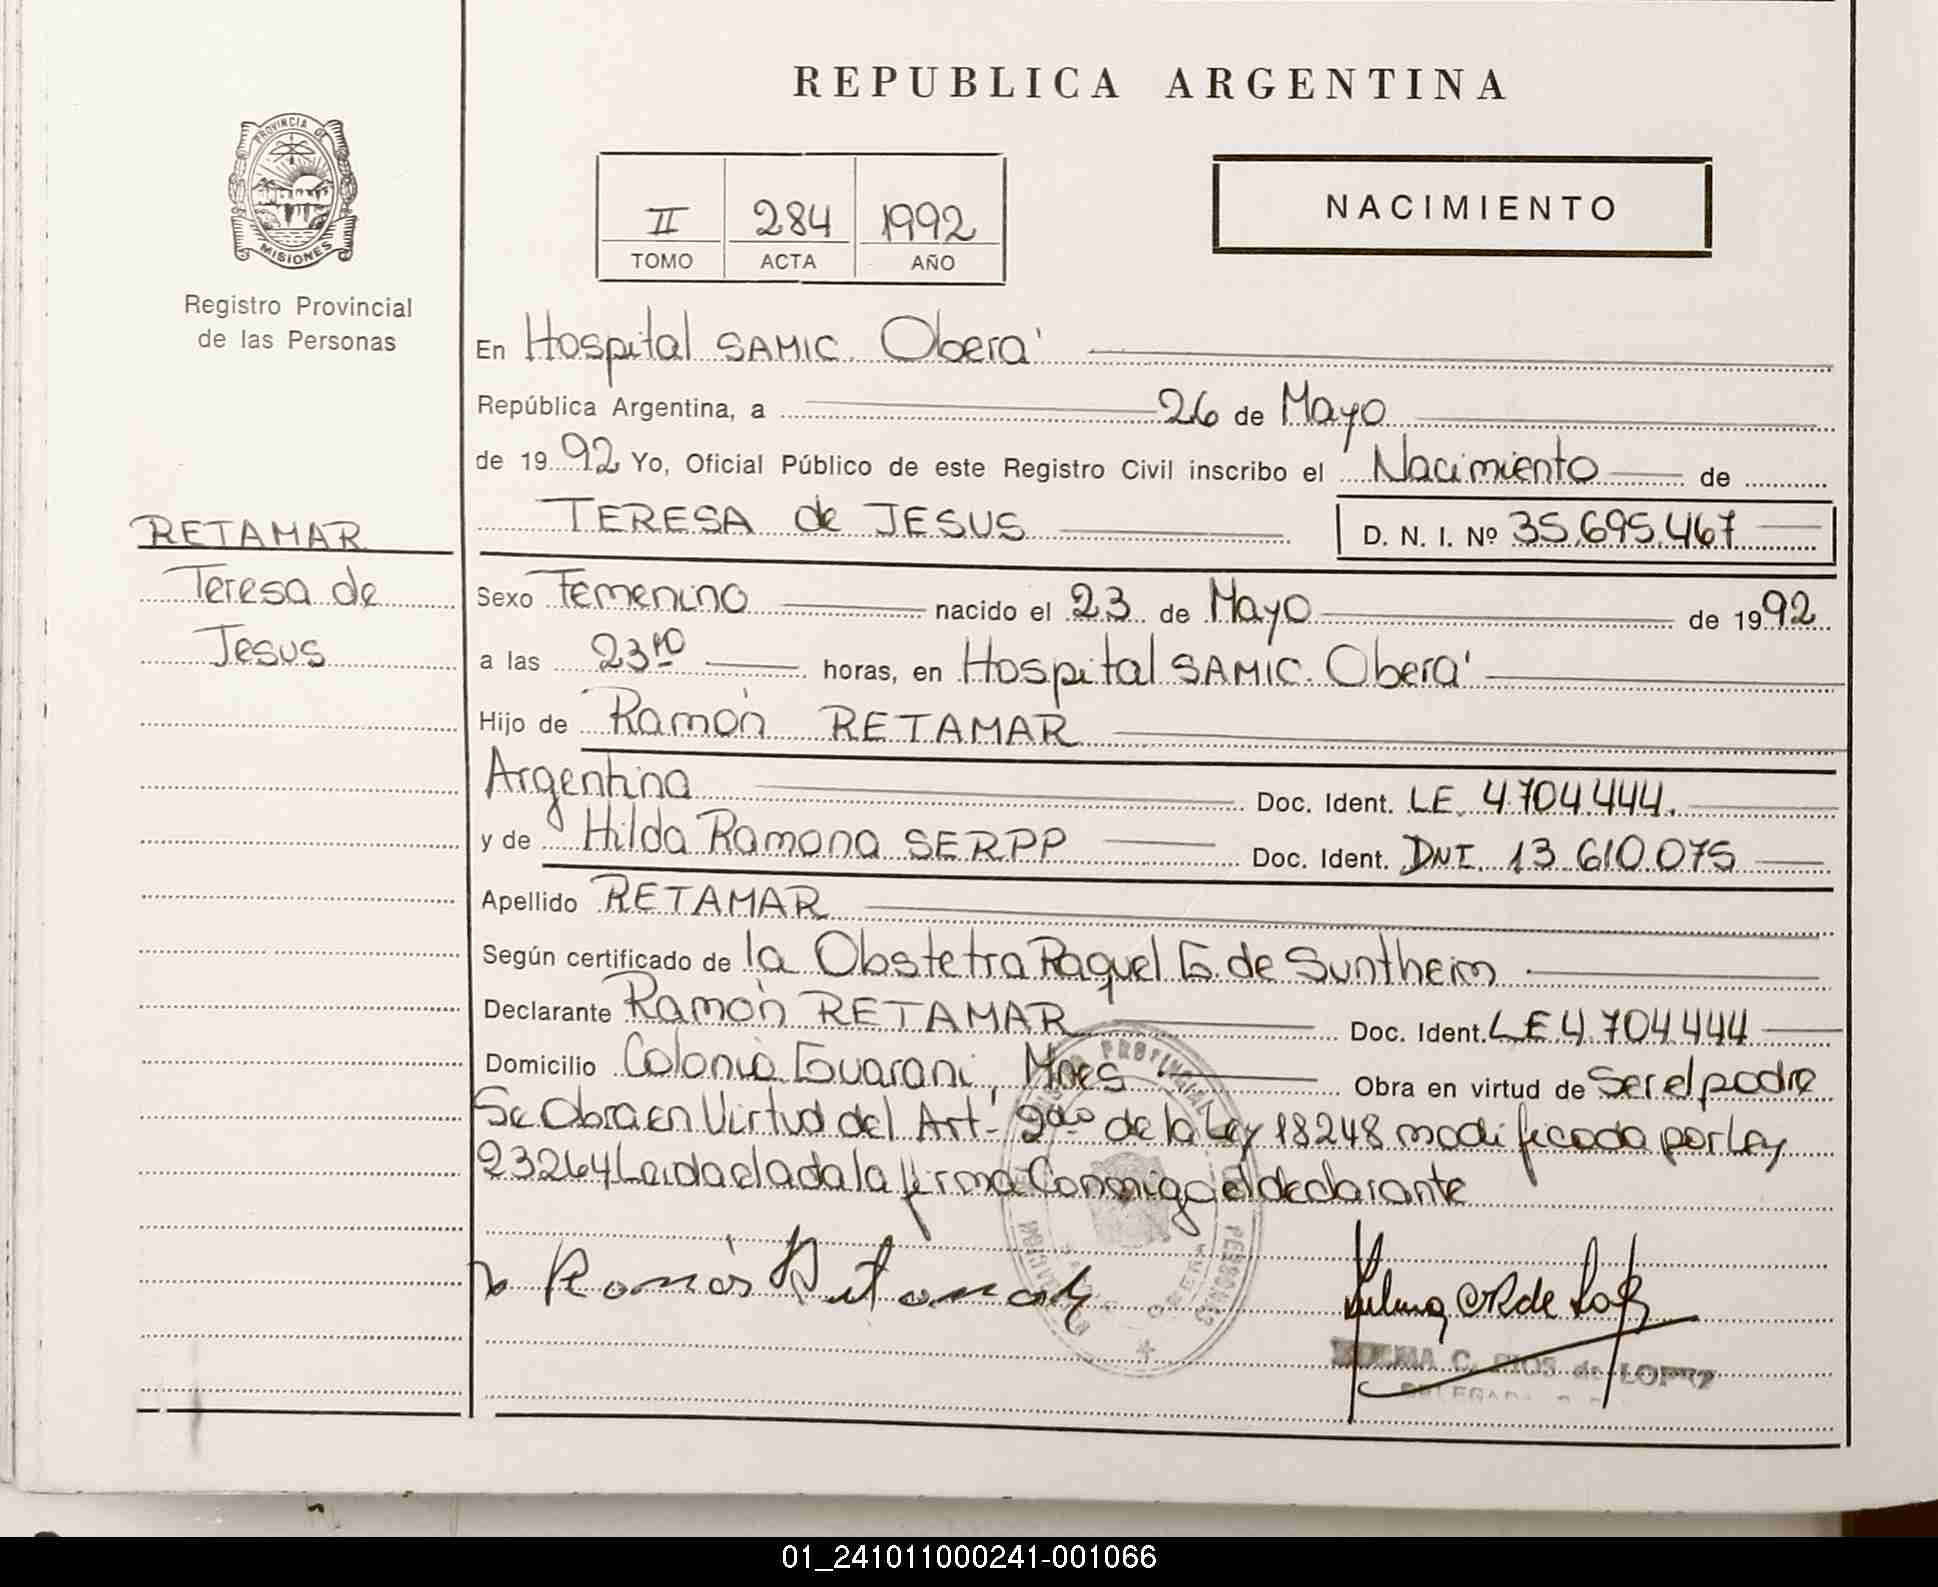 REPUBLICA ARGENTINA
PROVINCIA DE
MISIONES
Registro Provincial
de las Personas
II 284 1992
TOMO ACTA AÑO
NACIMIENTO
En Hospital SAMIC. Oberá
República Argentina, a 26 de Mayo
de 1992 Yo, Oficial Público de este Registro Civil inscribo el Nacimiento de
TERESA de JESUS D. N. I. Nº 35.695.467
RETAMAR
Teresa de
Jesus
Sexo Femenino nacido el 23 de Mayo de 1992
a las 23 10 horas, en Hospital SAMIC. Oberá
Hijo de Ramón RETAMAR
Argentina Doc. Ident. LE. 4.704.444.
y de Hilda Ramona SERPP Doc. Ident. DNI. 13.610.075
Apellido RETAMAR
Según certificado de la Obstetra Raquel G. de Suntheim
Declarante Ramón RETAMAR Doc. Ident. LE 4.704444
Domicilio Colonia Guarani, Mnes Obra en virtud de Ser el padre
Se Obra en Virtud del Art. 2do de la Ley 18248 modificada por Ley
23264 Leida el acta la firma Conmigo el declarante
Ramón Retamar
C. RIOS de LOPEZ
01_241011000241-001066